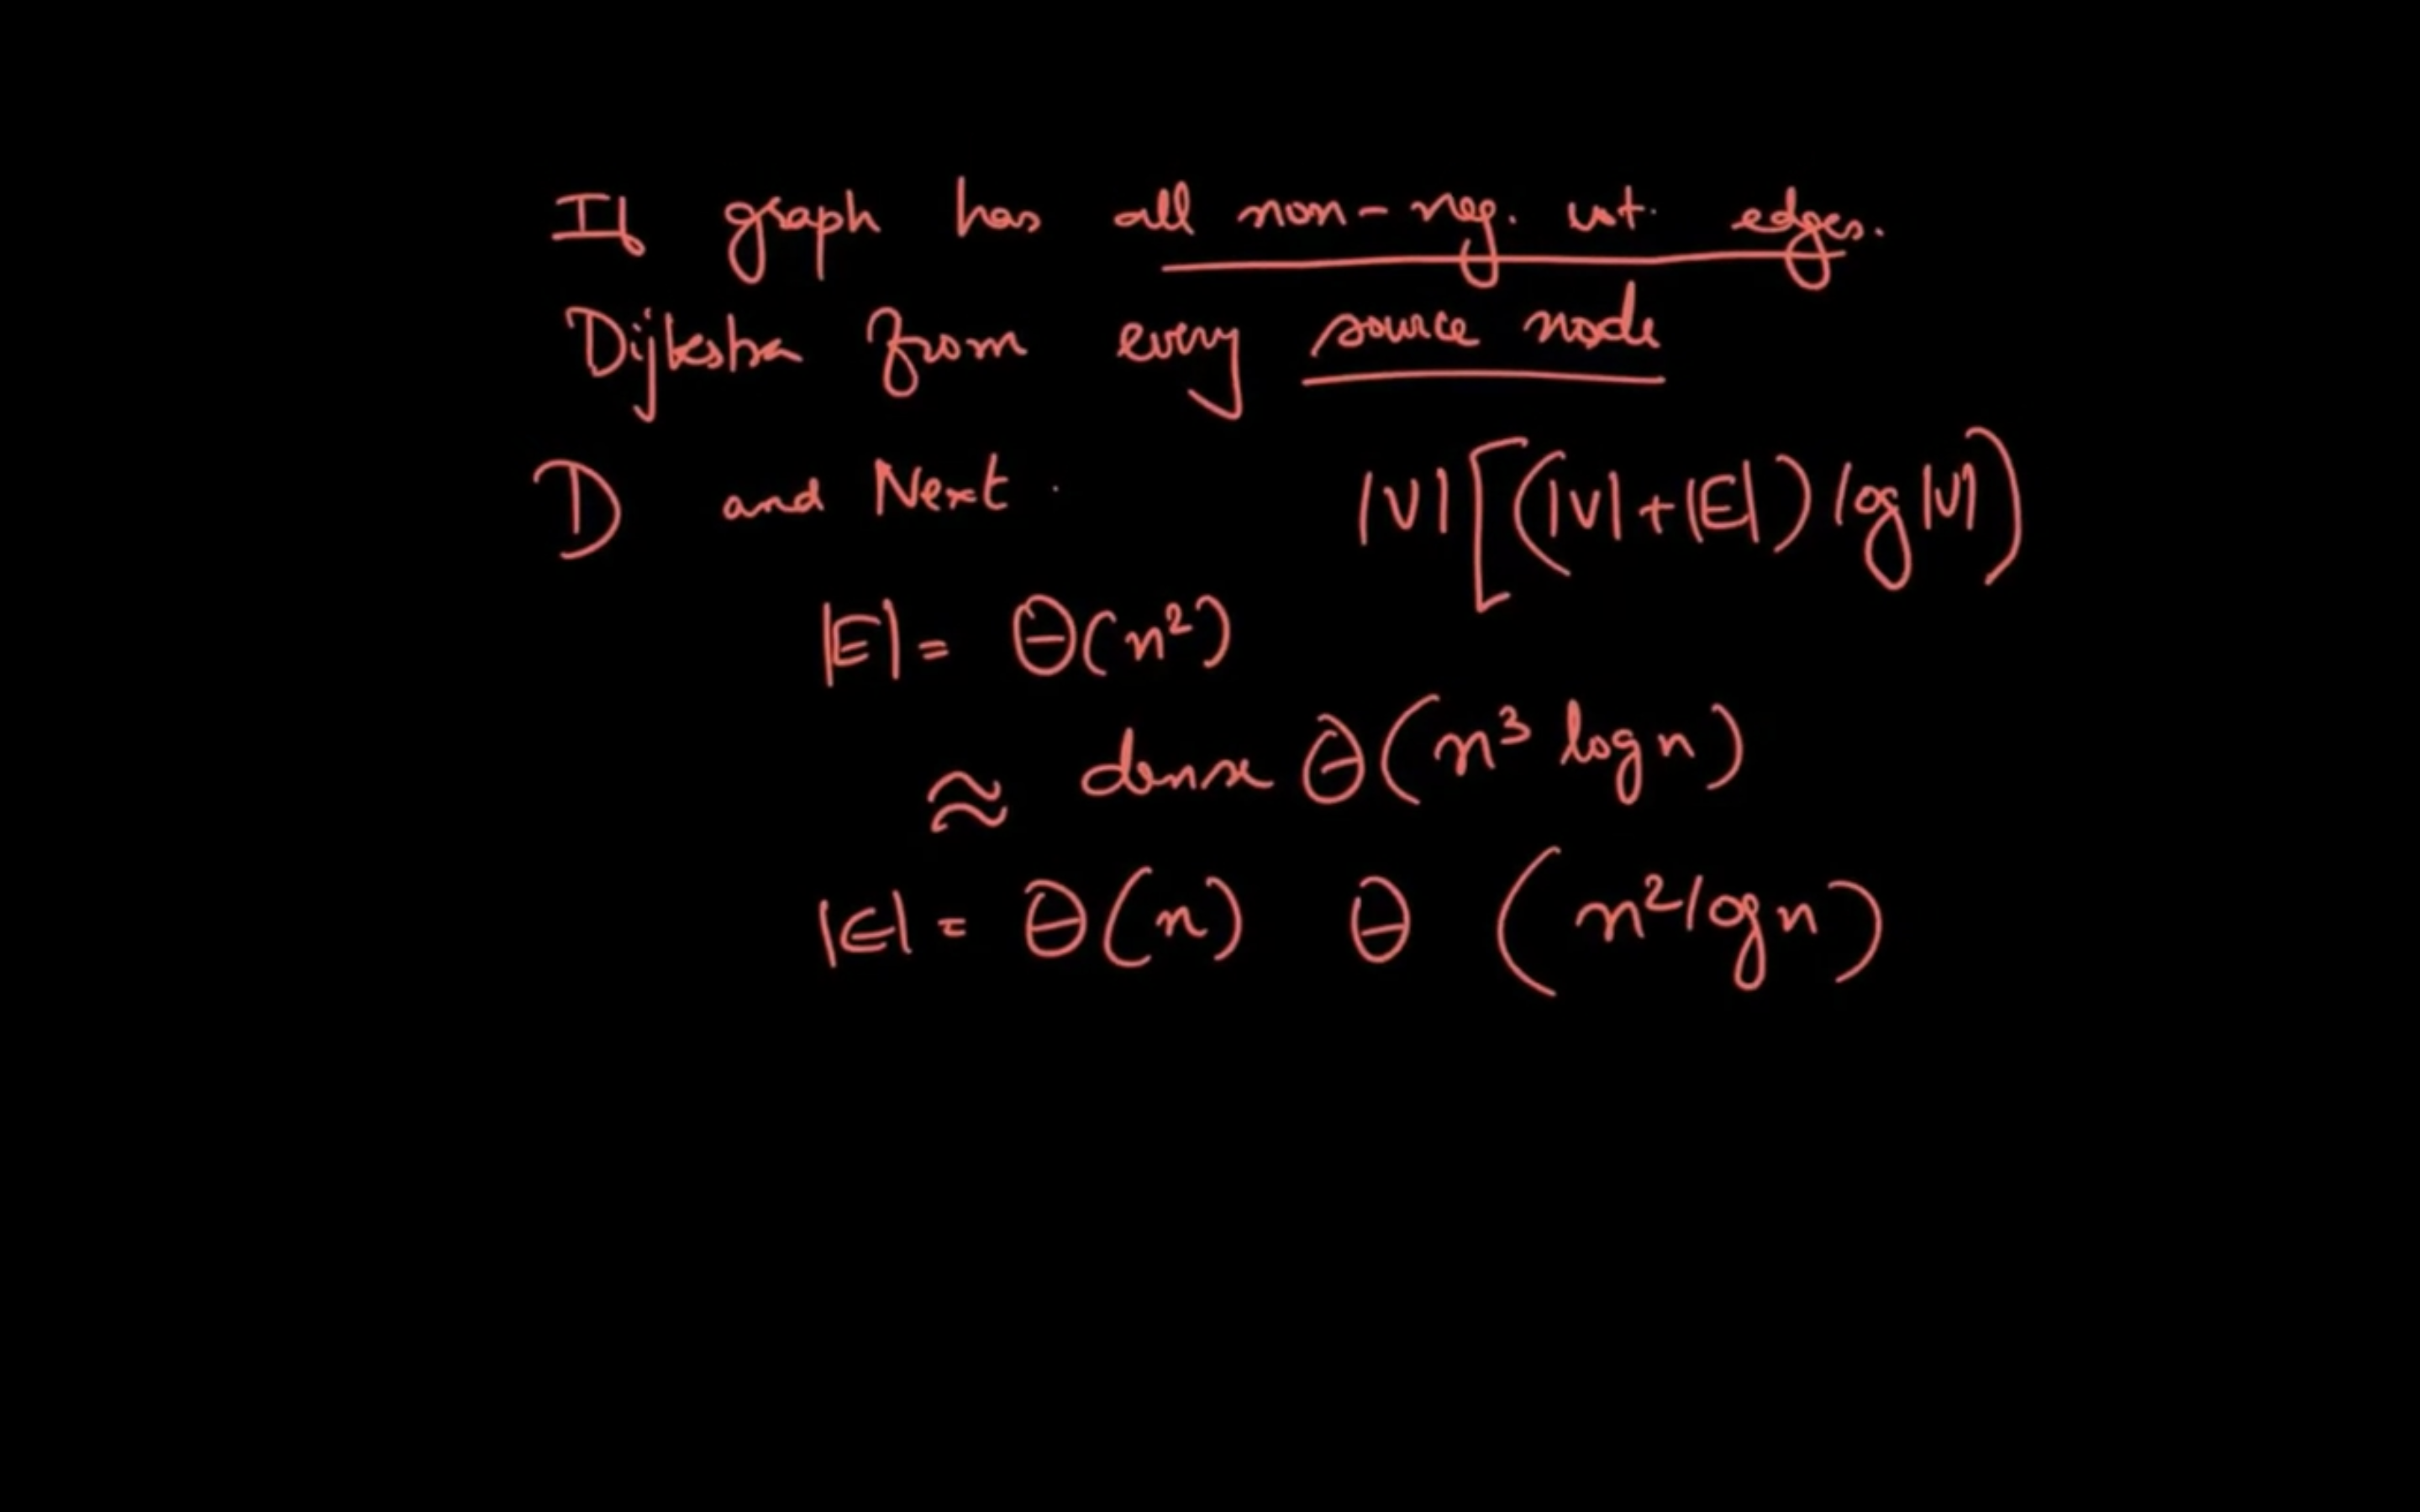 If graph has all non-neg. wt. edges.
Dijkstra from every source node
D and Next. |V| [(|V|+|E|) log|V|)
|E| = Θ(n²)
≈ dense Θ(n³ log n)
|E| = Θ(n) Θ (n² log n)